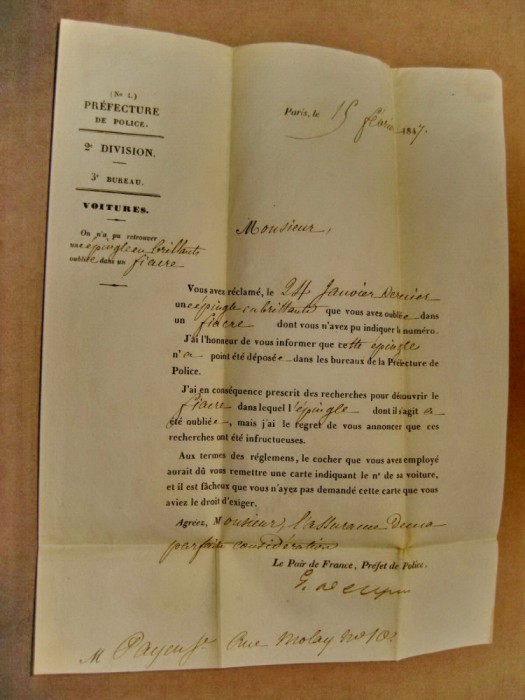 (No 4.)
PRÉFECTURE
DE POLICE.
2e DIVISION.
3e BUREAU.
VOITURES.
On n'a pu retrouver
une épingle en brillants
oubliée dans un fiacre
Paris, le 15 février 1847.
Monsieur,
Vous avez réclamé, le 24 Janvier Dernier
une épingle en brillants que vous avez oubliée dans
un fiacre dont vous n'avez pu indiquer le numéro.
J'ai l'honneur de vous informer que cette épingle
n'a point été déposée dans les bureaux de la Préfecture de
Police.
J'ai en conséquence prescrit des recherches pour découvrir le
fiacre dans lequel l'épingle dont il s'agit a
été oubliée, mais j'ai le regret de vous annoncer que ces
recherches ont été infructueuses.
Aux termes des réglemens, le cocher que vous avez employé
aurait dû vous remettre une carte indiquant le no de sa voiture,
et il est fâcheux que vous n'ayez pas demandé cette carte que vous
aviez le droit d'exiger.
Agréez, Monsieur, l'assurance De ma
parfaite considération
Le Pair de France, Préfet de Police.
M Payen Rue Molay No 10